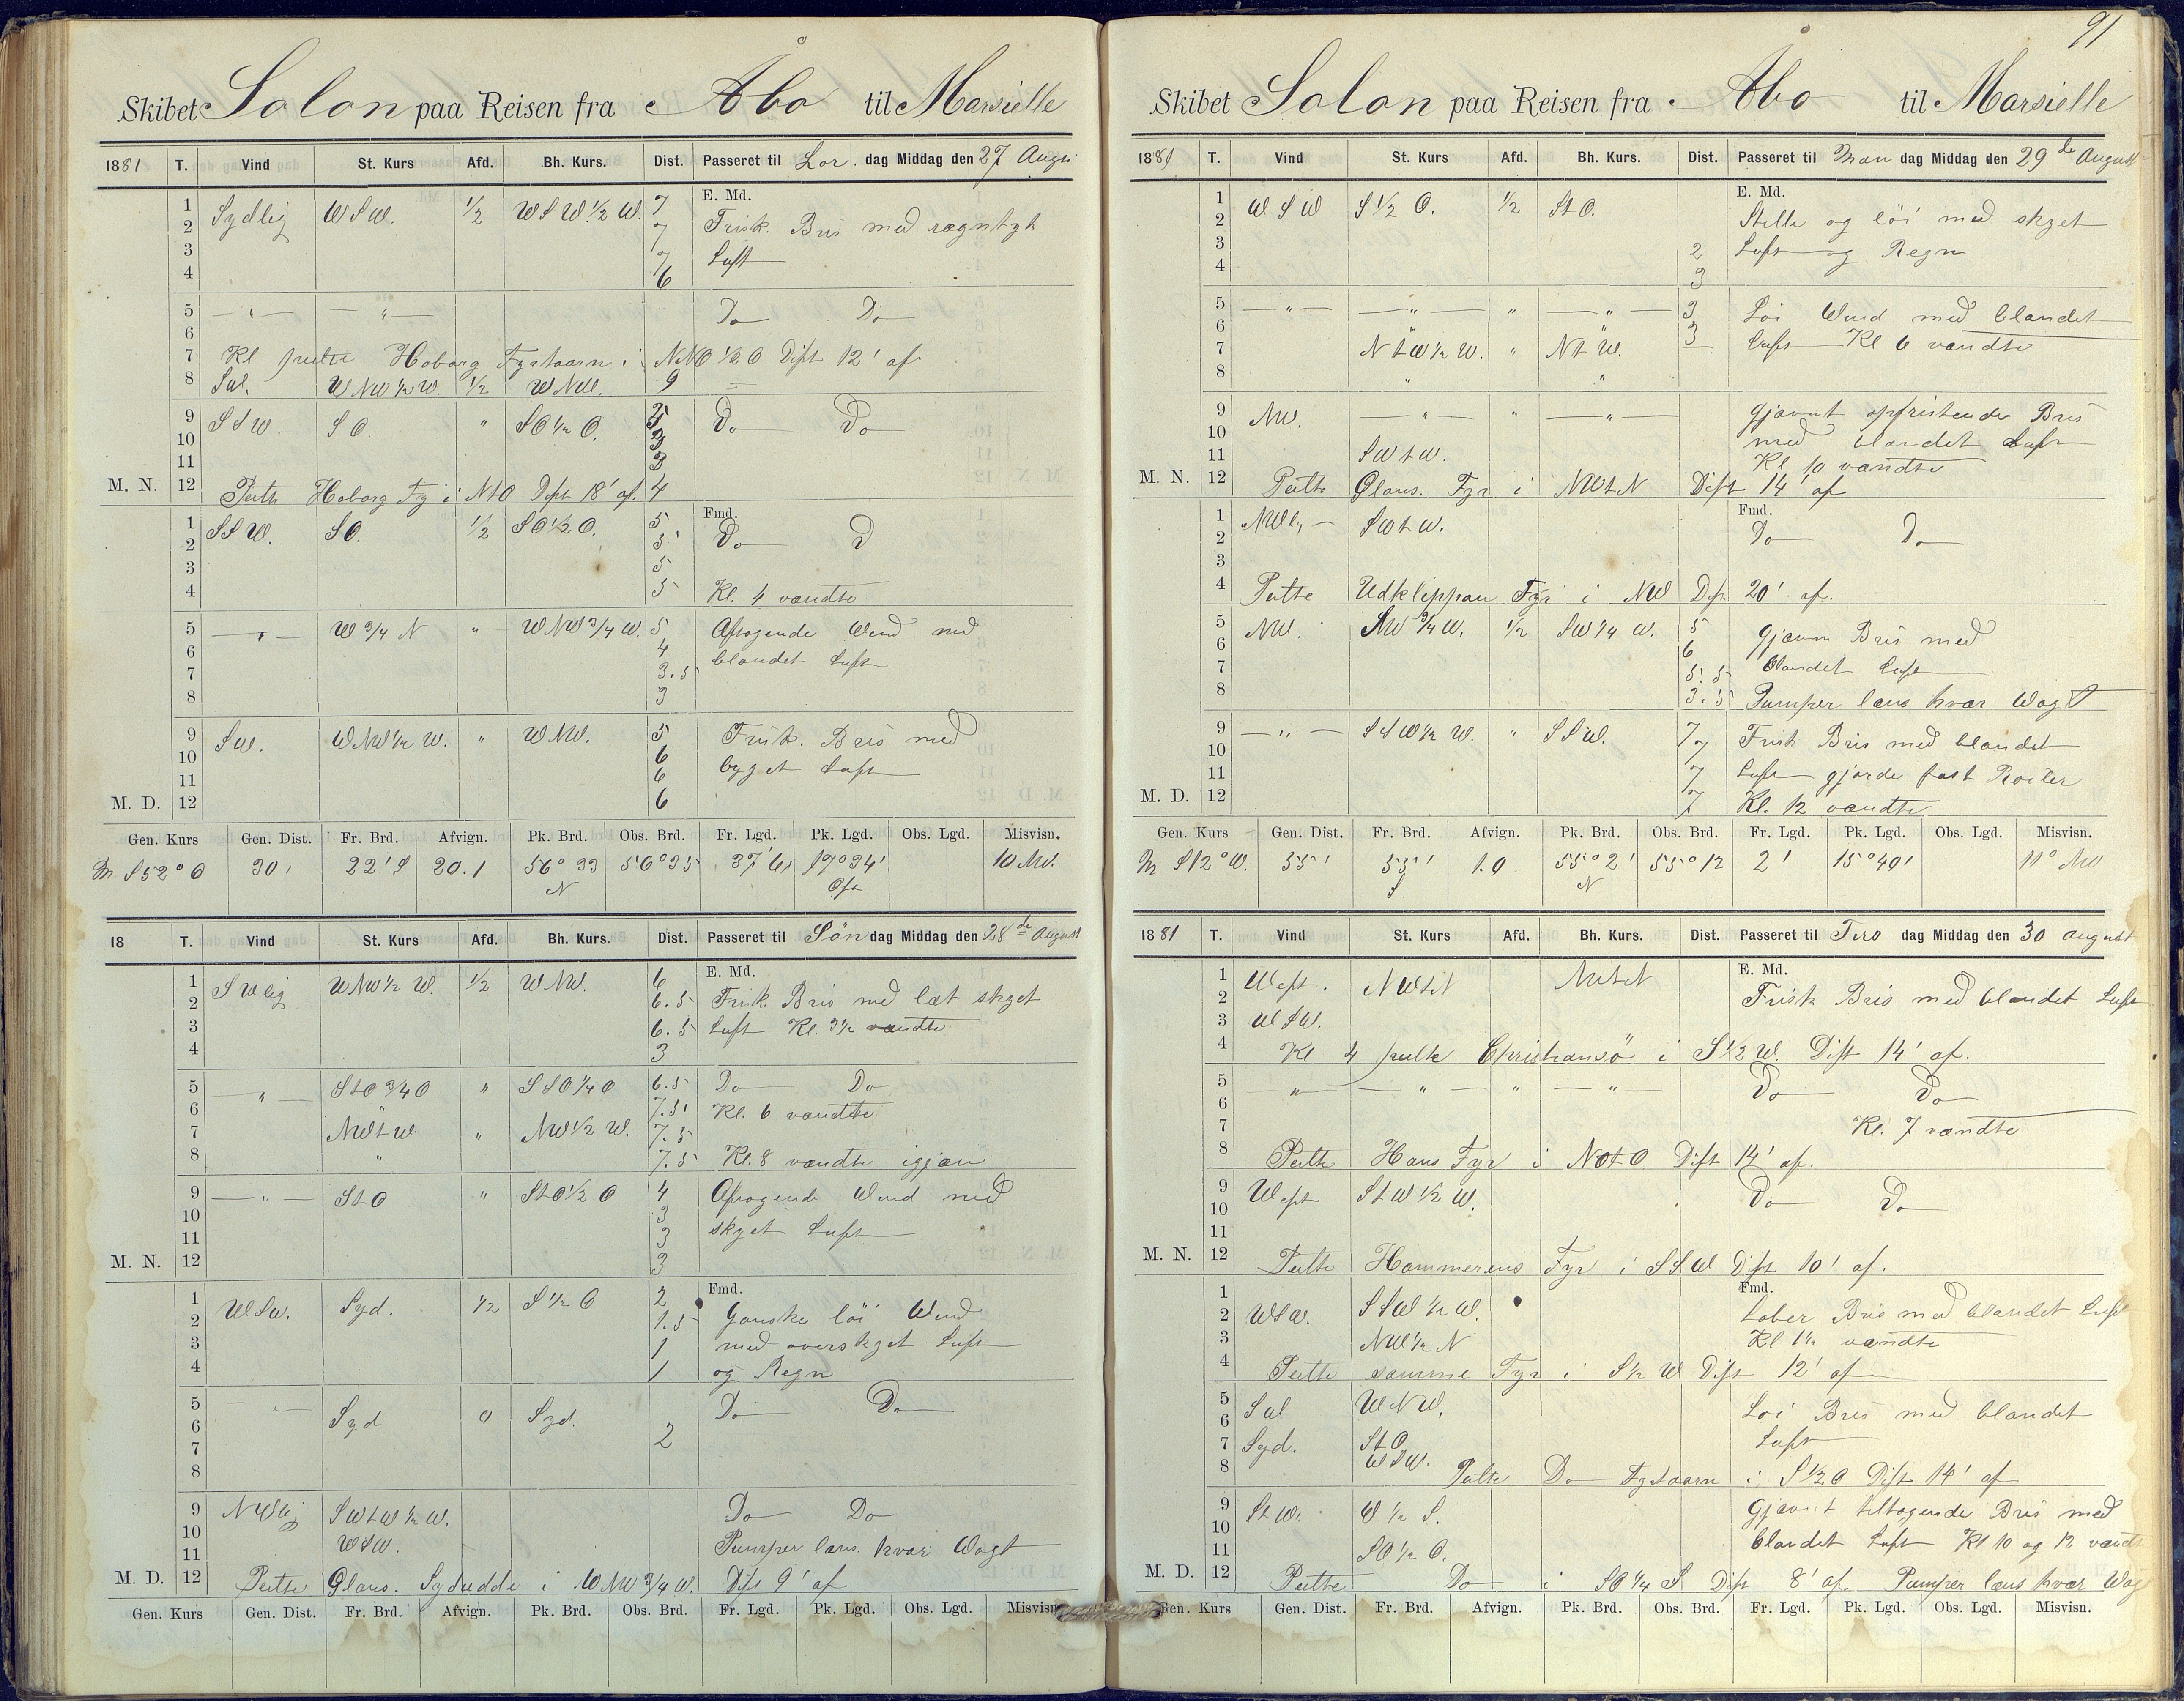 Skibet Solon paa Reisen fra Åbo til Marsielle
1881 T. Vind St. Kurs Afd. Bh. Kurs. Dist. Passeret til Lør. dag Middag den 27 Augs.
E. Md.
1 Sydlig WSW. 1/2 WSW 1/2 W. 7 Frisk. Bris med rægntyk
2 7
3 7 Luft
4 6
5 — " — — " — Do Do
6
7 Kl peilte Hoborg Fyrtaarn i NNO 1/2 O Dist 12' af
8 SW. WNW 1/2 W. 1/2 WNW. 9
9 SSW. SO. " SO 1/2 O. Do Do
10 3
11 3
M. N. 12 Peilte Hoborg Fy i NtO Dist 18' af. 4
Fmd.
1 SSW. SO. 1/2 SO 1/2 O. 5 Do D
2 5
3 5
4 5 Kl. 4 vændte
5 — " — W 3/4 N " WNW 3/4 W. 5 Aftagende Wind med
6 4 blandet Luft
7 3.5
8 3
9 SW. WNW 1/2 W. " WNW. 5 Frisk. Bris med
10 6 byget Luft
11 6
M. D. 12 6
Gen. Kurs Gen. Dist. Fr. Brd. Afvign. Pk. Brd. Obs. Brd. Fr. Lgd. Pk. Lgd. Obs. Lgd. Misvisn.
S 52° O 30' 22' S 20.1 56° 33 N 56° 35 37' 19° 34' Ost 10 NW.
18 T. Vind St. Kurs Afd. Bh. Kurs. Dist. Passeret til Søn dag Middag den 28de August
E. Md.
1 SWlig WNW 1/2 W. 1/2 WNW. 6
2 6.5 Frisk. Bris med læt skyet
3 6.5 Luft Kl. 3 1/2 vændte
4 3
5 — " — StO 3/4 O " SSO 1/4 O 6.5 Do Do
6 7.5 Kl. 6 vændte
7 NWtW " NW 1/2 W. 7.5
8 " 7.5 Kl. 8 vændte igjæn
9 — " — StO " StO 1/2 O 4 Aftagende Wind med
10 3
11 3 skyet Luft
M. N. 12 3
Fmd.
1 WSW. Syd. 1/2 S 1/2 O 2 Ganske löi Wind
2 1.5
3 1 med overskyet Luft
4 1 og Regn
5 " Syd 0 Syd. Do Do
6 2
7
8
9 NWlig SWtW 1/2 W. Do Do
10
11 WSW. Pumper læns. hvær Wagt
M. D. 12 Peilte Ølans. Sydudde i WNW 3/4 W. Dist 9' af
Gen. Kurs Gen. Dist. Fr. Brd. Afvign. Pk. Brd. Obs. Brd. Fr. Lgd. Pk. Lgd. Obs. Lgd. Misvisn.
91
Skibet Solon paa Reisen fra Åbo til Marsielle
1881 T. Vind St. Kurs Afd. Bh. Kurs. Dist. Passeret til Man dag Middag den 29de August
E. Md.
1 WSW S 1/2 O. 1/2 StO.
2 Stille og löi med skyet
3 2 Luft og Regn
4 3
5 — " — — " — " — " — 3 Löi Wind med blandet
6 3 Luft Kl 6 vændte
7 NtW 1/2 W. " NtW.
8 " "
9 NW. — " — " — " — Gjævnt opfriskende Bris
10 med blandet Luft
11 SWtW. Kl 10 vændte
M. N. 12 Peilte Ølans. Fyr i NWtN Dist 14' af
Fmd.
1 NWly — SWtW.
2 Do Do
3
4 Peilte Udklippan Fyr i NW Dist 20' af.
5 NW. SW 3/4 W. 1/2 SW 1/4 W. 5 Gjævn Bris med
6 6
7 5.5 blandet Luft
8 3.5 Pumper læns hvær Wagt
9 — " — SSW 1/2 W. " SSW. 7 Frisk Bris med blandet
10 7
11 7 Luft gjorde fast Roiler
M. D. 12 7 Kl. 12 vændte
Gen. Kurs Gen. Dist. Fr. Brd. Afvign. Pk. Brd. Obs. Brd. Fr. Lgd. Pk. Lgd. Obs. Lgd. Misvisn.
S 12° W. 55' 55' S 1.0 55° 2' N 55° 12 2' 15° 40' 11° NW
1881 T. Vind St. Kurs Afd. Bh. Kurs. Dist. Passeret til Tirs dag Middag den 30 august
E. Md.
1 West. NWtN NWtN
2 Frisk Bris med blandet Luft
3 WSW.
4 Kl 4 peilte Christiansö i S 1/2 W. Dist 14' af.
5 " — " — " — " — Do Do
6
7 Kl. 7 vændte
8 Peilte Hans Fyr i NOtO Dist 14' af.
9 West StW 1/2 W. Do Do
10
11
M. N. 12 Peilte Hammerens Fyr i SSW Dist 10' af.
Fmd.
1 SSW 1/2 W.
2 WSW. Laber Bris med blandet Luft
3 NW 1/2 N Kl 1 1/2 vændte
4 Peilte samme Fyr i S 1/2 W Dist 12' af
5 SW WNW. Löi Bris med blandet
6
7 Syd. StO Luft
8 WSW. Peilte Do Fyrtaarn i S 1/2 O Dist 14' af
9 StW. W 1/2 S. Gjævnt tiltagende Bris med
10
11 SO 1/2 O. blandet Luft Kl 10 og 12 vændt
M. D. 12 Peilte Do i SO 1/4 S Dist 8' af. Pumper læns hvær Wag
Gen. Kurs Gen. Dist. Fr. Brd. Afvign. Pk. Brd. Obs. Brd. Fr. Lgd. Pk. Lgd. Obs. Lgd. Misvisn.